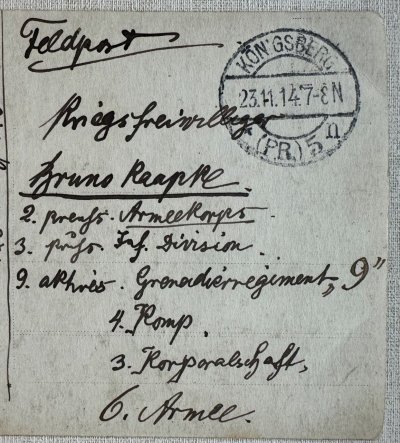 Feldpost
KÖNIGSBERG
23.11.14.7-8N
(PR.) 5 n
Kriegsfreiwilliger
Bruno Raapke.
2. preuss. Armeekorps.
3. prß. Inf. Division.
9. aktives. Grenadierregiment „9"
4. Komp.
3. Korporalschaft,
6. Armee.